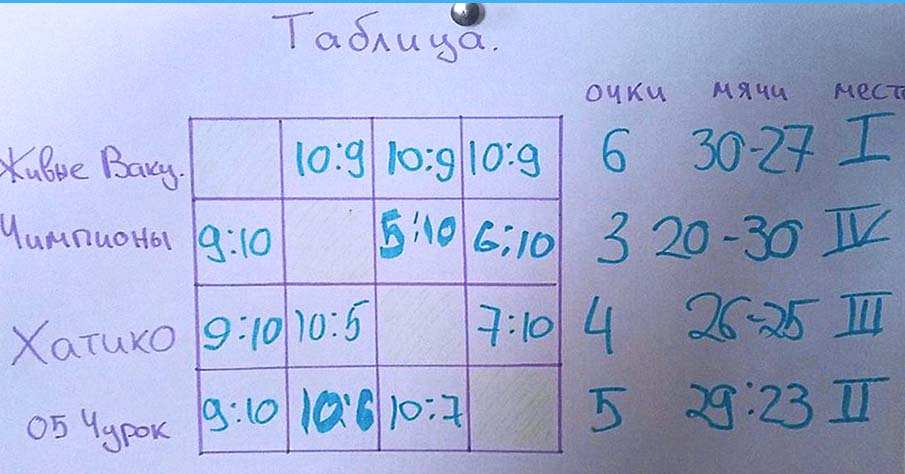 Таблица.
очки мячи мест
Живые Ваку. 10:9 10:9 10:9 6 30-27 I
Чимпионы 9:10 5:10 6:10 3 20-30 IV
Хатико 9:10 10:5 7:10 4 26-25 III
05 Чурок 9:10 10:6 10:7 5 29:23 II